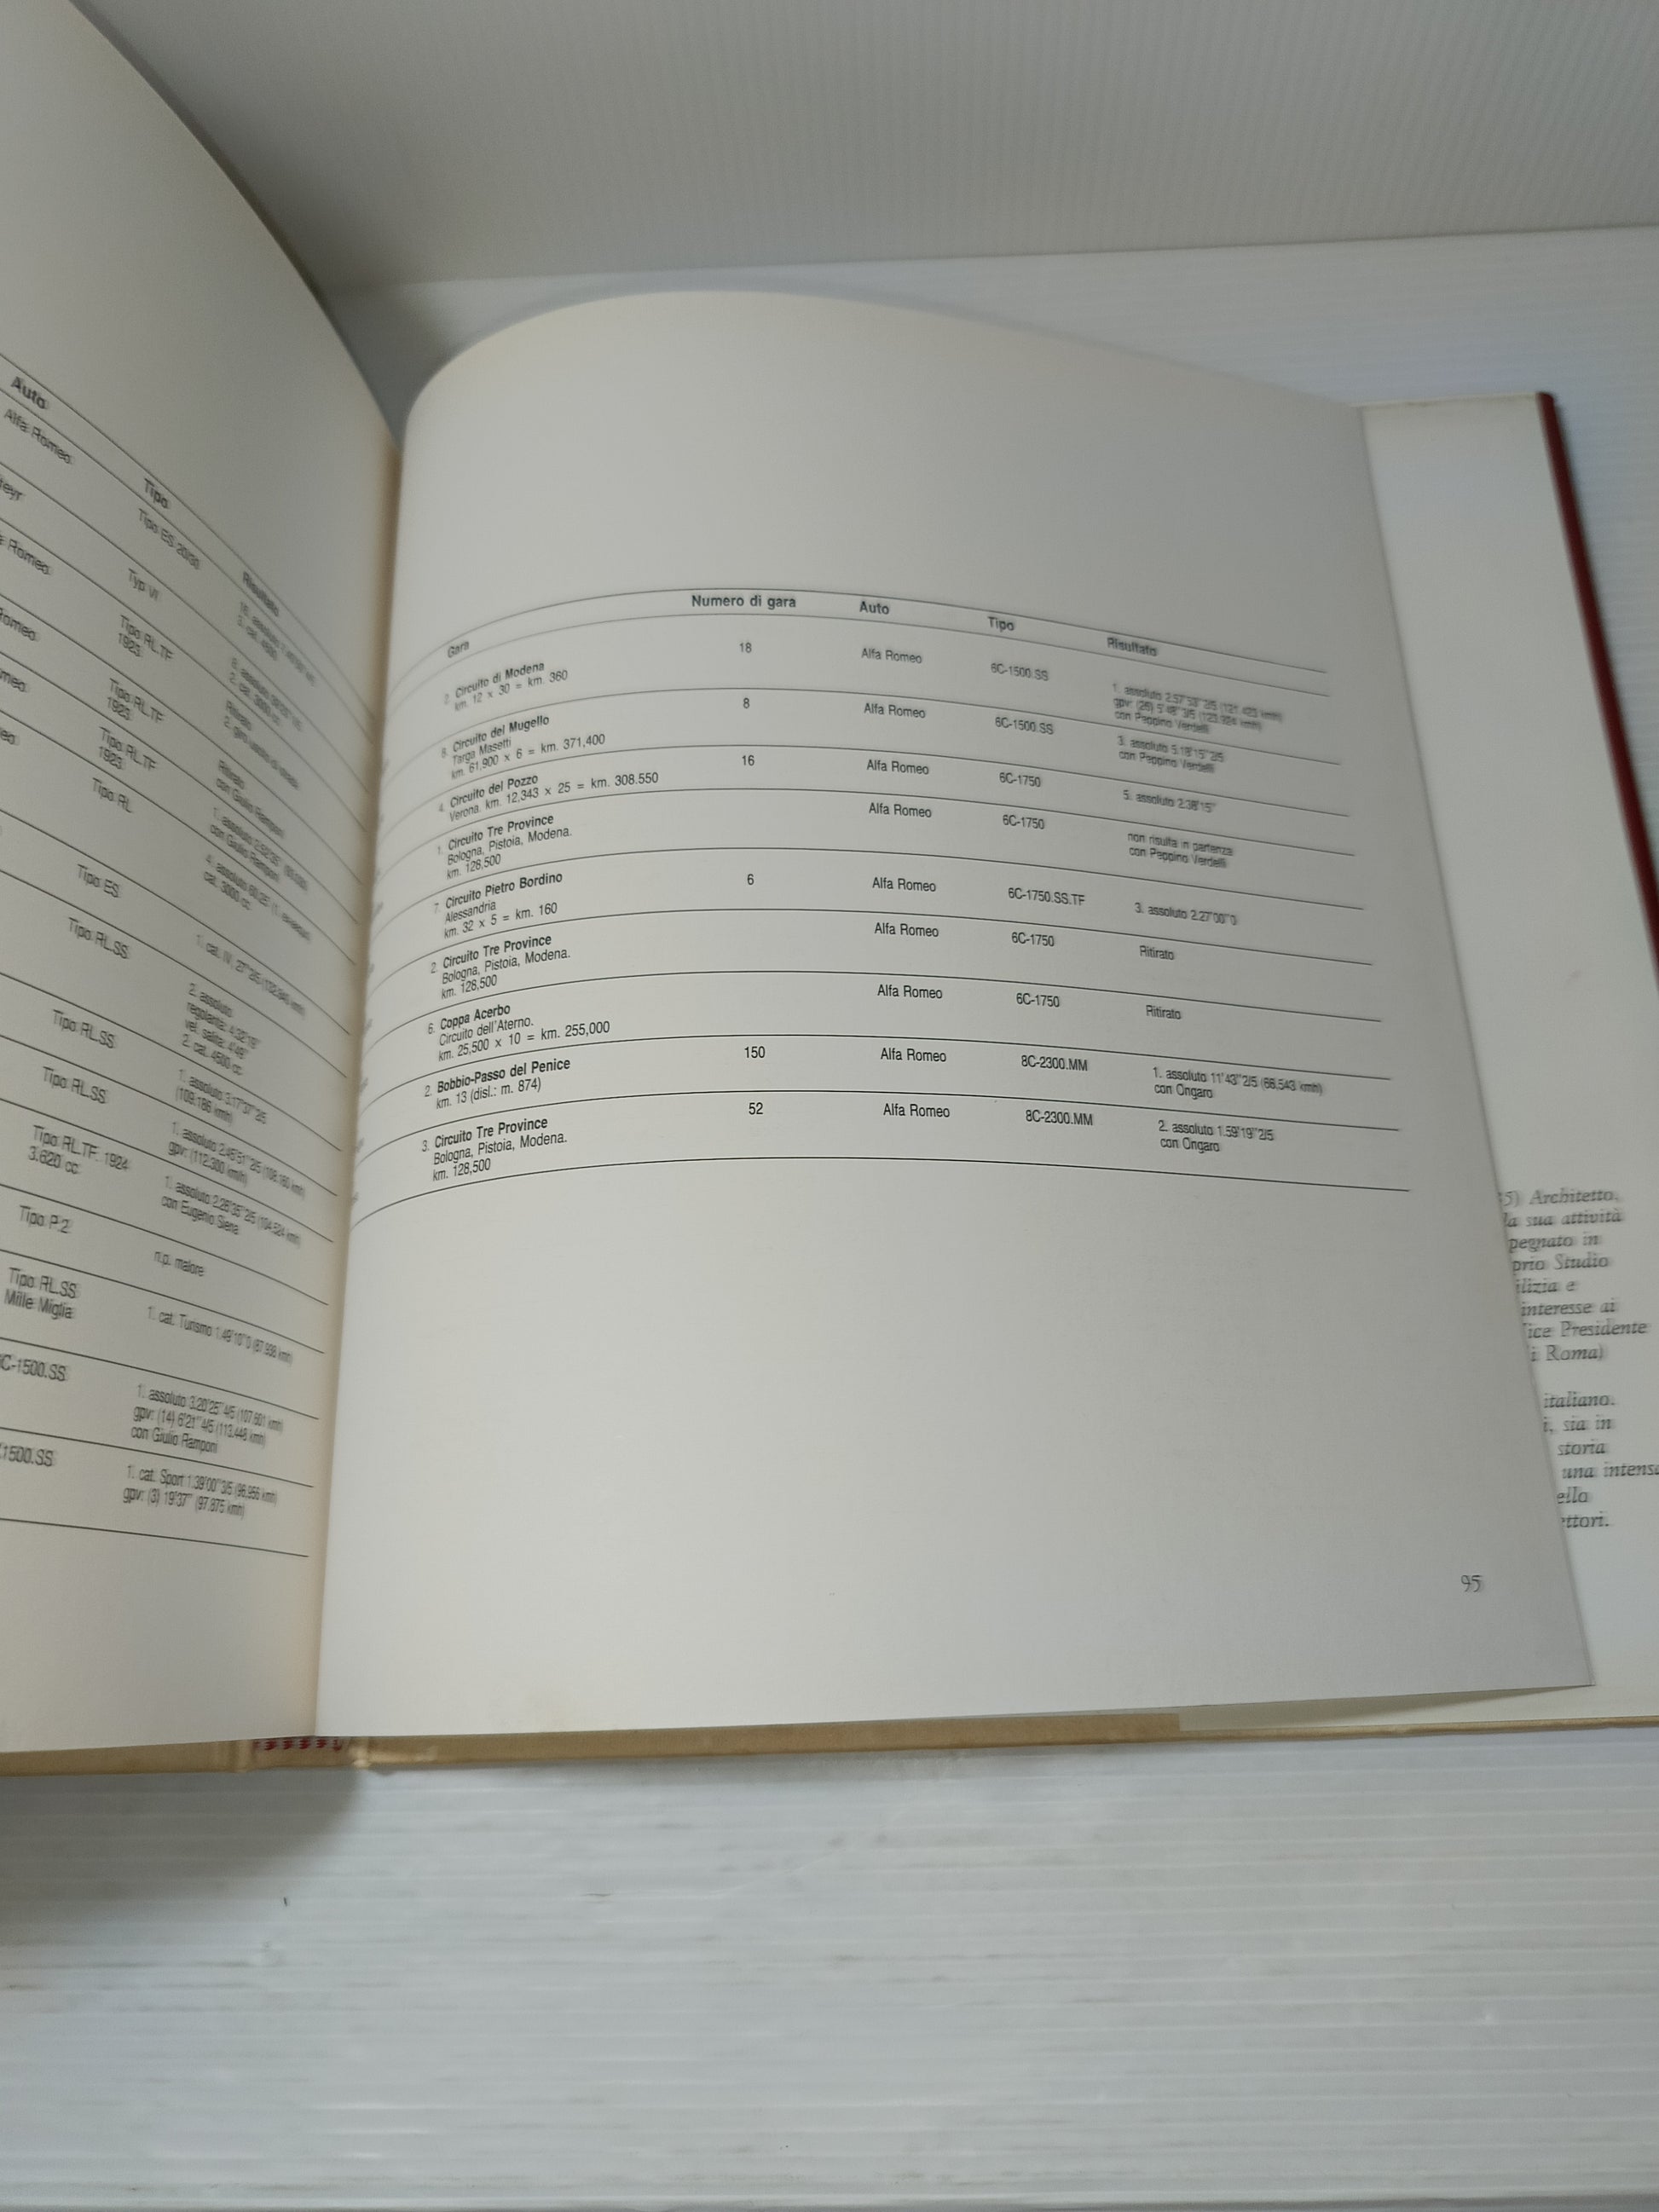 Auto Tipo Risultato
Alfa Romeo Tipo ES 20/30
Typ VI
Romeo Tipo RL.TF
1923
Romeo Tipo RL.TF Ritirato
1923
Tipo RL.TF Ritirato
1923 con Giulio Ramponi
Tipo RL
con Giulio Ramponi
cat. 3000 cc.
Tipo ES
Tipo RL.SS 2. assoluto
regolarità: 4.32'18"
vel. salita: 4'48"
2. cat. 4500 cc.
Tipo RL.SS 1. assoluto 3.17'37"2/5
(109.186 kmh)
Tipo RL.SS 1. assoluto 2.46'51"2/5 (108.180 kmh)
gpv: (112.300 kmh)
Tipo RL.TF. 1924 1. assoluto 2.26'35"2/5 (104.524 kmh)
3.620 cc. con Eugenio Siena
Tipo P.2 n.p. malore
Tipo RL.SS 1. cat. Turismo 1.49'10"0 (87.938 kmh)
Mille Miglia
C-1500.SS 1. assoluto 3.20'25"4/5 (107.601 kmh)
gpv: (14) 6'21"4/5 (113.448 kmh)
con Giulio Ramponi
1500.SS 1. cat. Sport 1.39'00"3/5 (96.956 kmh)
gpv: (3) 19'37" (97.875 kmh)
Gara Numero di gara Auto Tipo Risultato
2. Circuito di Modena 18 Alfa Romeo 6C-1500.SS 1. assoluto 2.57'53"2/5 (121.423 kmh)
km. 12 x 30 = km. 360 gpv: (26) 5'48"3/5 (123.924 kmh)
con Peppino Verdelli
8. Circuito del Mugello 8 Alfa Romeo 6C-1500.SS 3. assoluto 5.18'15"2/5
Targa Masetti con Peppino Verdelli
km. 61,900 x 6 = km. 371,400
4. Circuito del Pozzo 16 Alfa Romeo 6C-1750 5. assoluto 2.38'15"
Verona. km. 12,343 x 25 = km. 308.550
1. Circuito Tre Province Alfa Romeo 6C-1750 non risulta in partenza
Bologna, Pistoia, Modena. con Peppino Verdelli
km. 128,500
7. Circuito Pietro Bordino 6 Alfa Romeo 6C-1750.SS.TF 3. assoluto 2.27'00"0
Alessandria
km. 32 x 5 = km. 160
2. Circuito Tre Province Alfa Romeo 6C-1750 Ritirato
Bologna, Pistoia, Modena.
km. 128,500
6. Coppa Acerbo Alfa Romeo 6C-1750 Ritirato
Circuito dell'Aterno.
km. 25,500 x 10 = km. 255,000
2. Bobbio-Passo del Penice 150 Alfa Romeo 8C-2300.MM 1. assoluto 11'43"2/5 (66.543 kmh)
km. 13 (disl.: m. 874) con Ongaro
3. Circuito Tre Province 52 Alfa Romeo 8C-2300.MM 2. assoluto 1.59'19"2/5
Bologna, Pistoia, Modena. con Ongaro
km. 128,500
95
5) Architetto,
la sua attività
pegnato in
prio Studio
ilizia e
interesse ai
ice Presidente
i Roma)
italiano.
i, sia in
storia
una intensa
ello
ettori.